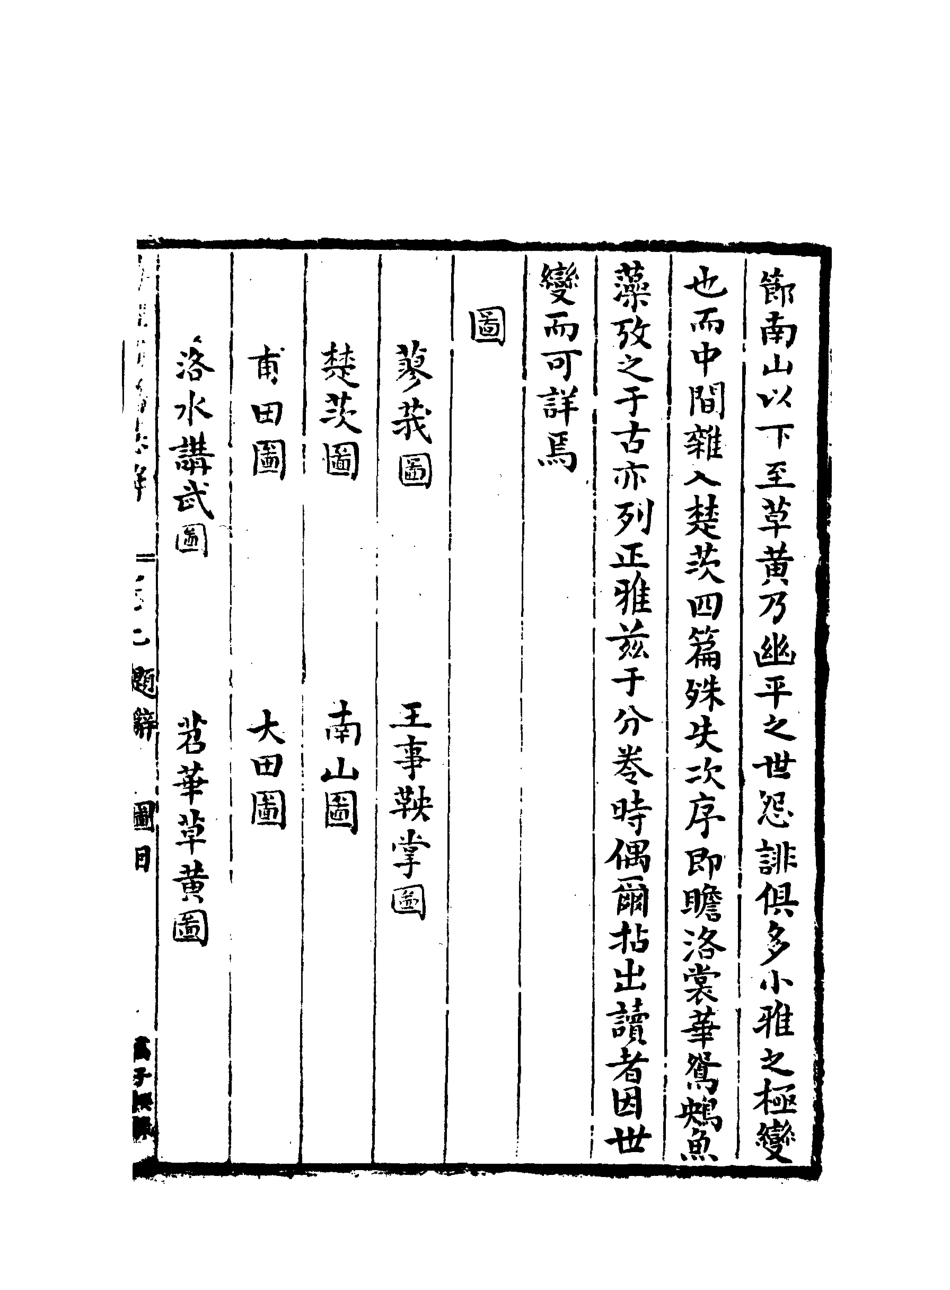 節南山以下至草黄乃幽平之世怨誹俱多小雅之極變
也而中間雜入楚茨四篇殊失次序即瞻洛裳華鴛鴦魚
藻攷之于古亦列正雅茲于分卷時偶爾拈出讀者因世
變而可詳焉
圖
蓼莪圖
王事鞅掌圖
楚茨圖
南山圖
甫田圖
大田圖
洛水講武圖
苕華草黄圖
題辭
圖目